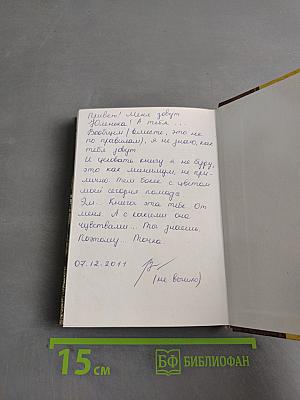 Привет! Меня зовут
Юленька! А тебя...
Вообщем (вместе, это не
по правилам), я не знаю, как
тебя зовут.
И целовать книгу я не буду,
это как минимум, не при-
лично. Тем более с цветом
моей сегодня помады
Эм.. Книга эта тебе. От
меня. А с какими она
чувствами... Ты знаешь.
Поэтому... Точка.
07.12.2011
(не вышло)
15 см
БФ БИБЛИОФАН